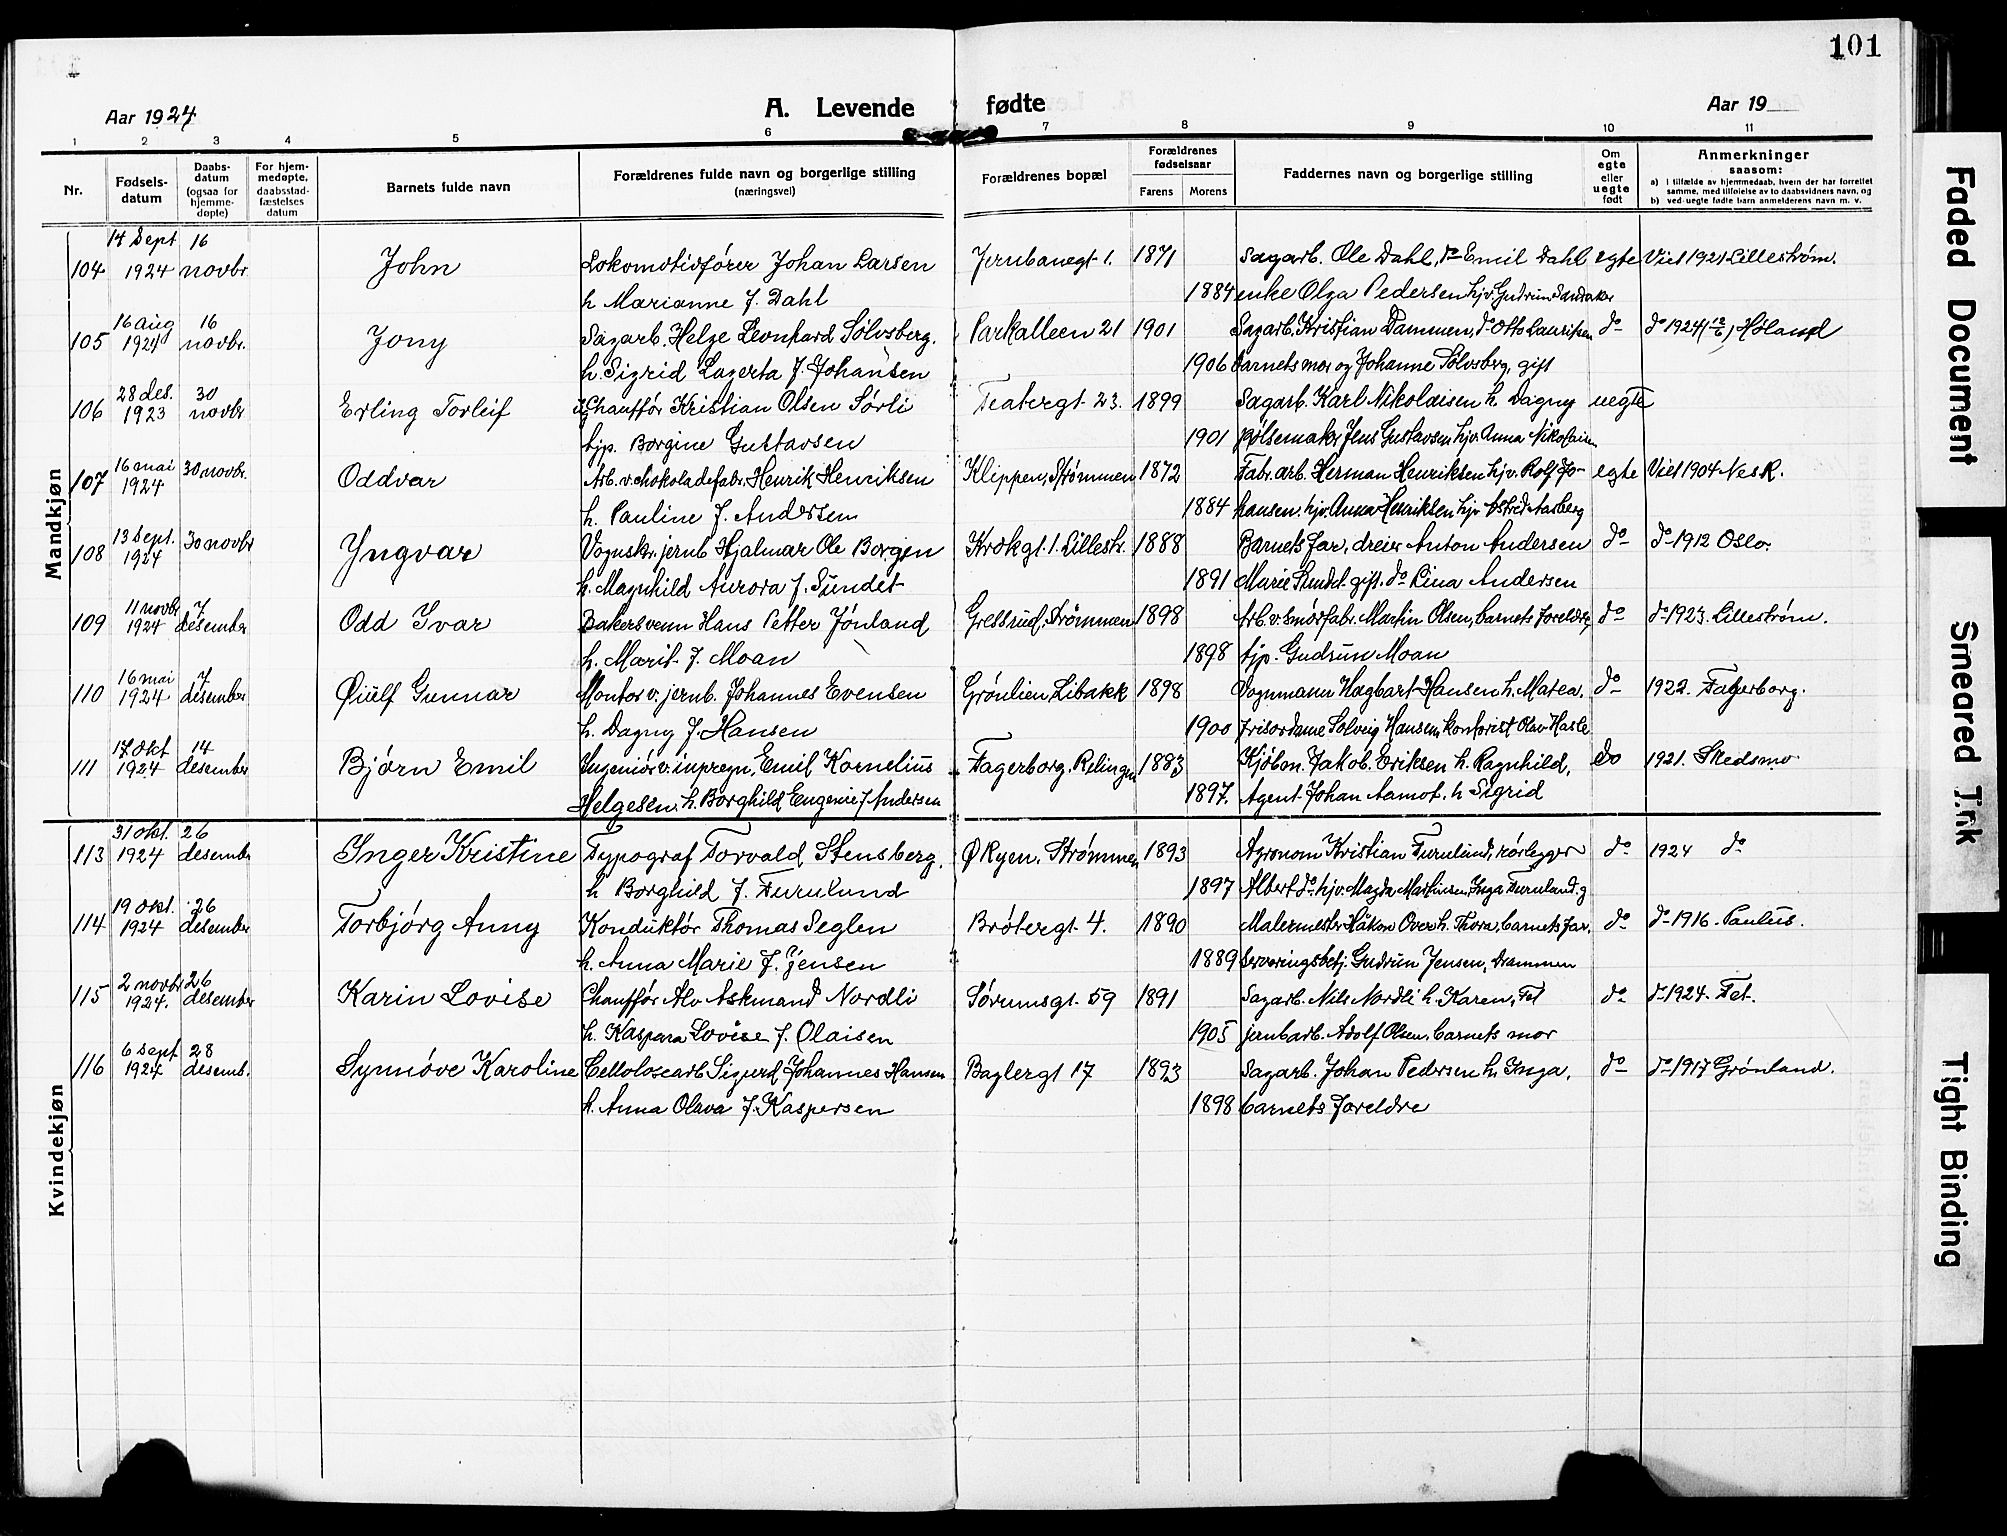 101
Aar 1924
A. Levende fødte
Aar 19
1 2 3 4 5 6 7 8 9 10 11
Nr.
Fødsels-
datum
Daabs-
datum
(ogsaa for
hjemme-
døpte)
For hjem-
medøpte,
daabsstad-
fæstelses
datum
Barnets fulde navn
Forældrenes fulde navn og borgerlige stilling
(næringsvei)
Forældrenes bopæl
Forældrenes
fødselsaar
Farens Morens
Faddernes navn og borgerlige stilling
Om
egte
eller
uegte
født
Anmerkninger
saasom:
a) i tilfælde av hjemmedaab, hvem der har forrettet
samme, med tilføielse av to daabsvidners navn, og
b) ved uegte fødte barn anmelderens navn m. v.
Mandkjøn
14 Sept 16
104 1924 novbr John Lokomotivfører Johan Larsen Jernbanegt 1. 1871 Sagarb. Ole Dahl, do Emil Dahl egte Viet 1921 Lillestrøm.
h Marianne f. Dahl 1884 enke Olga Pedersen hjv. Gudrun Sandaker
16 aug 16
105 1924 novbr. Jony Sagarb. Helge Leonhard Sølvsberg. Parkalleen 21 1901 Sagarb. Kristian Dammen, do Otto Lauritsen do do 1924 Høland
h. Sigrid Lagerta f. Johansen 1906 barnets mor og Johanne Sølvsberg, gift
28 des. 30
106 1923 novbr Erling Torleif Chauffør Kristian Olsen Sørli Teatergt. 23. 1899 Sagarb. Karl Nikolaisen h. Dagny uegte
tjp. Borgine Gustavsen 1901 pølsemaker Jens Gustavsen hjv. Anna Nikolaisen
16 mai
107 1924 30 novbr. Oddvar Arb. v. chokoladefabr. Henrik Henriksen Klippen, Strømmen 1872 Fabr. arb. Herman Henriksen hjv. Rolf Jo- egte Viet 1904 Nes R.
h. Pauline f. Andersen 1884 hansen. hjv. Anna Henriksen hjv Astrid Aasberg
13 Sept.
108 1924 30 novbr Yngvar Vognskr. jernb. Hjalmar Ole Borgen Krokgt. 1. Lillestr. 1888 Barnets far, dreier Anton Andersen do do 1912 Oslo.
h. Magnhild Aurora f. Sundet 1891 Marie Sundet gift. do Lina Andersen
11 novbr 7
109 1924 desember Odd Ivar Bakersvenn Hans Petter Jønland Gressrud, Strømmen 1898 Arb. v. smørfabr. Martin Olsen, barnets foreldre, do do 1923. Lillestrøm.
h. Marit f. Moan 1898 tjp. Gudrun Moan
16 mai 7
110 1924 desember Øiulf Gunnar Montør v. jernb. Johannes Evensen Grønlien, Libakk 1898 Vognmann Hagbart Hansen h. Matea. do 1922. Fagerborg.
h. Dagny f. Hansen 1900 frisørdame Solveig Hansen, kontorist Olav Hasle
17 okt 14
111 1924 desember Bjørn Emil Ingeniør v. impregn, Emil Kornelius Fagerborg. Relingen 1883 Kjøbm. Jakob Eriksen h. Ragnhild, do 1921. Skedsmo
Helgesen. h. Borghild Eugenie f Andersen 1897. Agent Johan Aamot. h Sigrid
Kvindekjøn
31 okt. 26
113 1924 desembr Inger Kristine Typograf Torvald Stensberg. Ø Ryen. Strømmen 1893 Agronom Kristian Furulund, rørlegger do 1924 do
h Borghild f. Furulund 1897 Albert do hjv. Magda Mathisen, Inga Furulund. g
19 okt. 26
114 1924 desember Torbjørg Anny Konduktør Thomas Seglen Brøtergt. 4. 1890 Malermester Håkon Over h. Thora, barnets far. do do 1916. Paulus.
h. Anna Marie f. Jensen 1889 Serveringsbetj. Gudrun Jensen, Drammen
2 novbr 26
115 1924. desember Karin Lovise Chauffør Alv Askmand Nordli Sørumsgt. 59 1891 Sagarb. Nils Nordli h. Karen, Fet do do 1924. Fet.
h. Kaspara Lovise f. Olaisen 1905 jernbarb. Adolf Olsen, barnets mor
6 sept 28
116 1924 desemb. Synnøve Karoline Cellolosearb Sigurd Johannes Hansen Baglergt 17 1893 Sagarb. Johan Pedersen h. Inga, do do 1917 Grønland.
h. Anna Olava f. Kaspersen 1898 barnets foreldre
Faded Document
Smeared Ink
Tight Binding